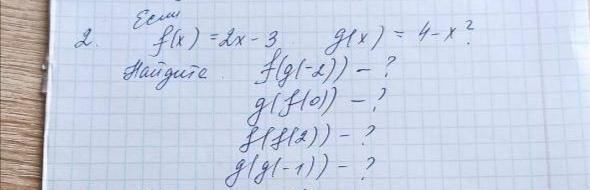 Если
2. f(x) = 2x - 3 g(x) = 4 - x²
Найдите f(g(-2)) - ?
g(f(0)) - ?
f(f(2)) - ?
g(g(-1)) - ?